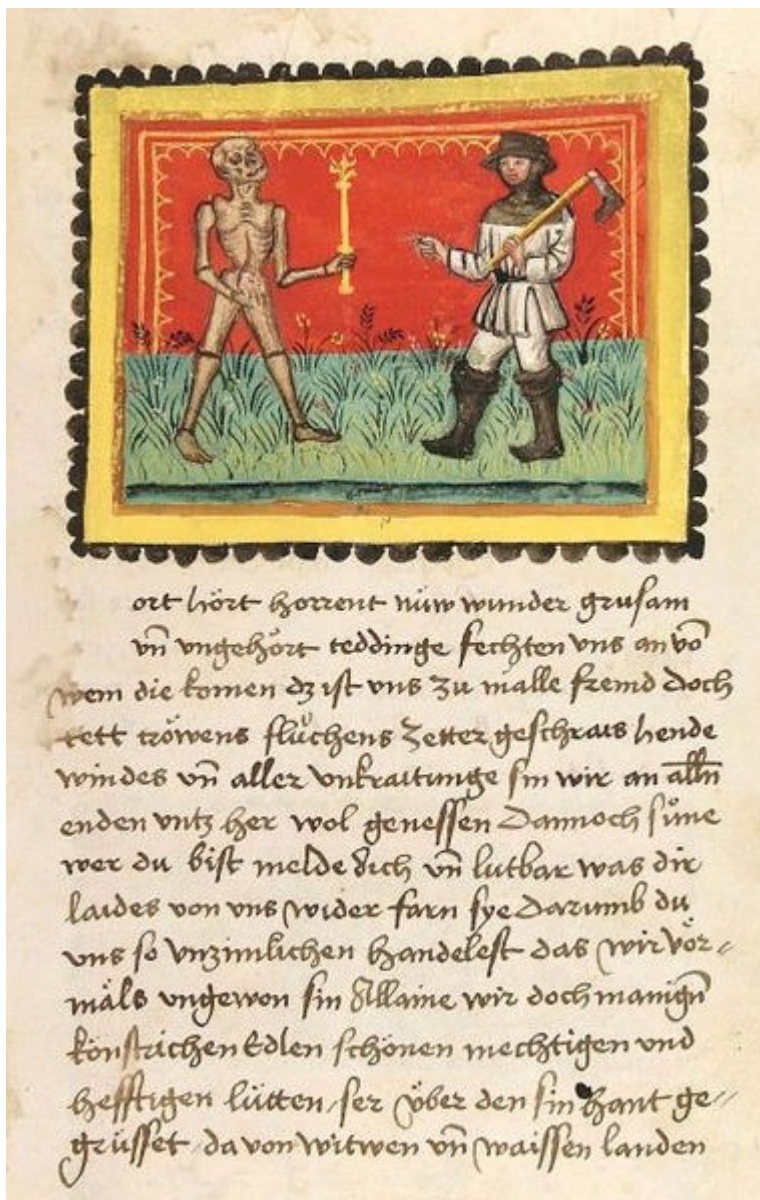 ort hört horrent nüw wunder grusam
vn̄ vngehört teddinge fechten vns an vō
wem die komen dz ist vns zu malle fremd doch
tett tröwens flůchens zetter geschrais hende
windes vn̄ aller ankraitunge sin wir an alln̄
enden vntz her wol genessen Dannoch sune
wer du bist melde dich vn̄ lutbar was dir
laides von vns wider farn sye Darumb du
vns so vnzimlichen handelest das wir vör〃
mäls vngewon sin Allaine wir doch manign̄
könstrichen Edlen schönen mechtigen und
hefftigen lütten ser über den hant ge〃
grüsset da von witwen vn̄ waissen landen